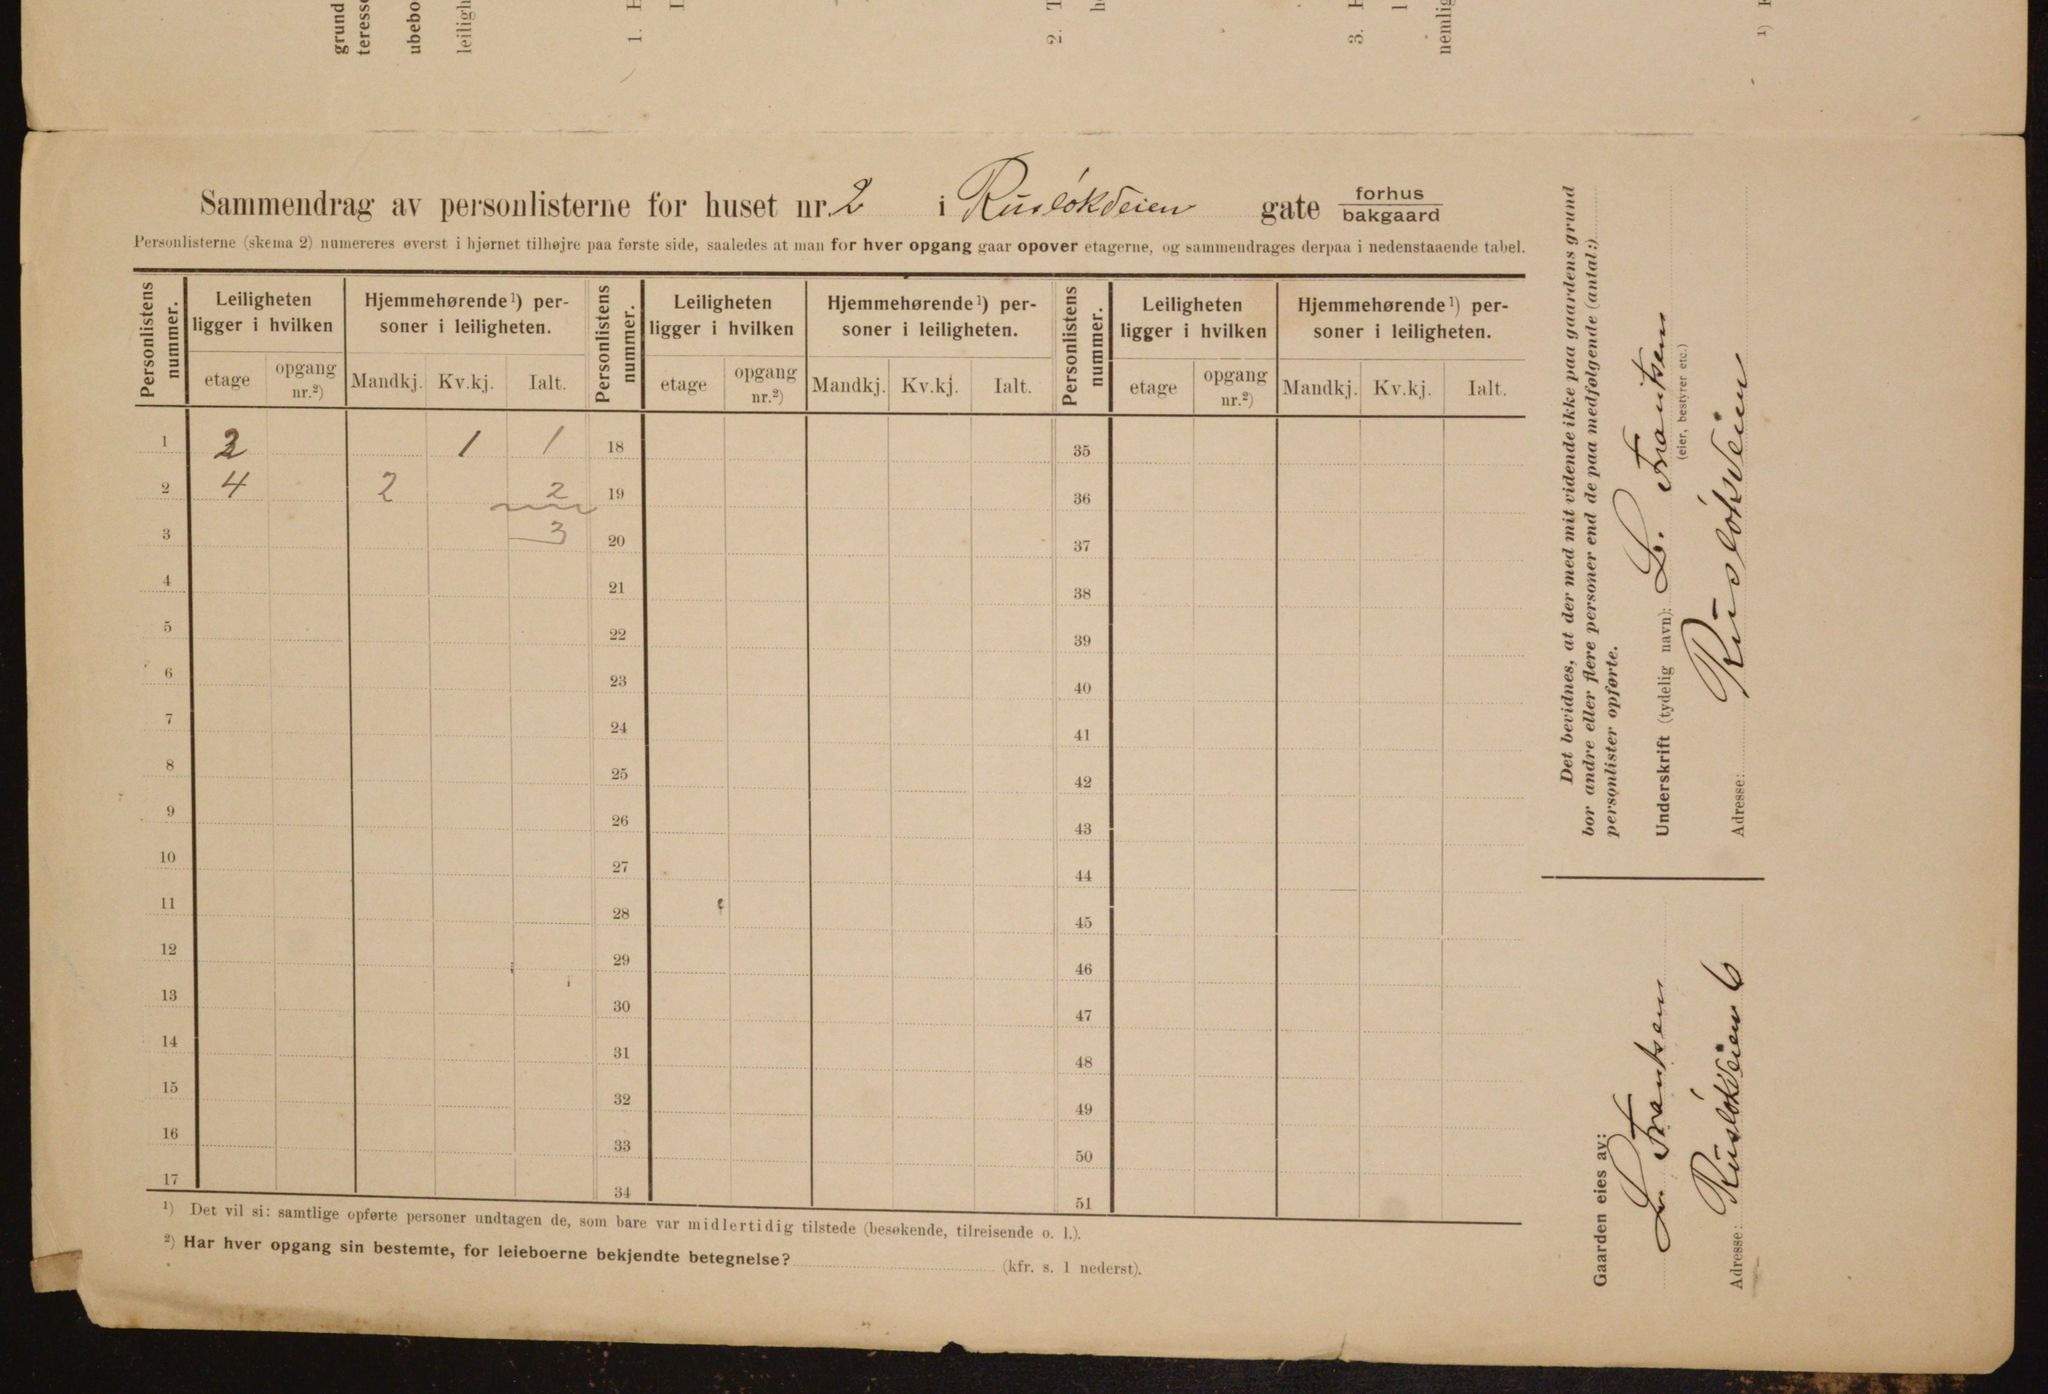 grund
teresse
ubebo
leiligh
1. H
2. T
3. H
nemlig
1)
Sammendrag av personlisterne for huset nr. 2 i Rusløkveien gate forhus
bakgaard
Personlisterne (skema 2) numereres øverst i hjørnet tilhøjre paa første side, saaledes at man for hver opgang gaar opover etagerne, og sammendrages derpaa i nedenstaaende tabel.
Personlistens nummer. Leiligheten ligger i hvilken Hjemmehørende 1) per-soner i leiligheten. Personlistens nummer. Leiligheten ligger i hvilken Hjemmehørende 1) per-soner i leiligheten. Personlistens nummer. Leiligheten ligger i hvilken Hjemmehørende 1) per-soner i leiligheten.
etage opgang nr.2) Mandkj. Kv.kj. Ialt. etage opgang nr.2) Mandkj. Kv.kj. Ialt. etage opgang nr.2) Mandkj. Kv.kj. Ialt.
1 2 1 1 18 35
2 4 2 2 19 36
3 3 20 37
4 21 38
5 22 39
6 23 40
7 24 41
8 25 42
9 26 43
10 27 44
11 28 45
12 29 46
13 30 47
14 31 48
15 32 49
16 33 50
17 34 51
1) Det vil si: samtlige opførte personer undtagen de, som bare var midlertidig tilstede (besøkende, tilreisende o. l.).
2) Har hver opgang sin bestemte, for leieboerne bekjendte betegnelse? (kfr. s. 1 nederst).
Det bevidnes, at der med mit vidende ikke paa gaardens grund
bor andre eller flere personer end de paa medfølgende (antal:)
personlister opførte.
Underskrift (tydelig navn): L. Frantsen
(eier, bestyrer etc.)
Adresse: Rusløkveien
Gaarden eies av:
L. Frantsen
Adresse: Rusløkveien 6